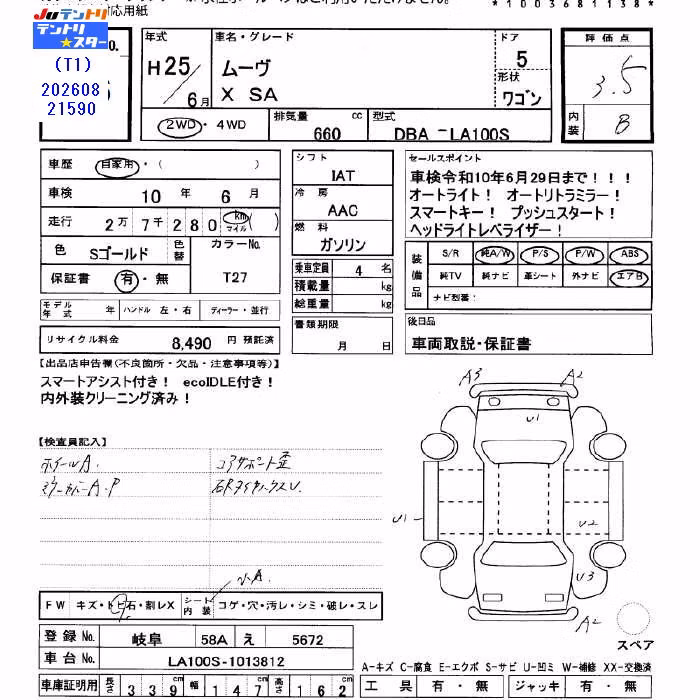 応用紙
*1003681138*
Juテントリ
テントリ★スター
(T1)
202608
21590
年式
H25/6月
車名・グレード
ムーヴ
X SA
ドア
5
形状
ワゴン
評価点
3.5
内装
B
2WD・4WD
排気量
660 cc
型式
DBA -LA100S
車歴
自家用・( )
車検
10年 6月
走行
2万7千280 km マイル ( )
色
Sゴールド
色替
カラーNo.
T27
保証書
有・無
シフト
IAT
冷房
AAC
燃料
ガソリン
乗車定員 4 名
積載量 kg
総重量 kg
モデル年式 年
ハンドル 左・右
ディーラー・並行
リサイクル料金 8,490 円 預託済
書類期限
月 日
セールスポイント
車検令和10年6月29日まで!!!
オートライト! オートリトラミラー!
スマートキー! プッシュスタート!
ヘッドライトレベライザー!
装備品
S/R 純A/W P/S P/W ABS
純TV 純ナビ 革シート 外ナビ エアB
ナビ型番:
後日品
車両取説・保証書
【出品店申告欄(不良箇所・欠品・注意事項等)】
スマートアシスト付き! ecoIDLE付き!
内外装クリーニング済み!
【検査員記入】
ホイールA.
コアサポート歪
A3
A2
U1
U1
U2
U3
A2
FW キズ・トビ石・割レX
シート内装 コゲ・穴・汚レ・シミ・破レ・スレ
登録No. 岐阜 58A え 5672
車台No. LA100S-1013812
車庫証明用 長さ 339cm 幅 147cm 高さ 162cm
スペア
A-キズ C-腐食 E-エクボ S-サビ U-凹ミ W-補修 XX-交換済
工具 有・無 ジャッキ 有・無